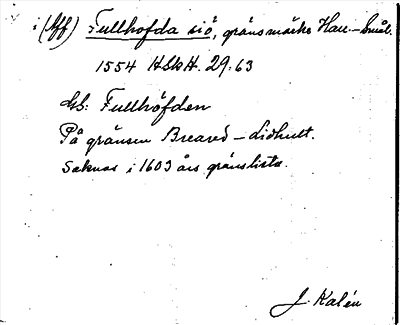 i (Aff) Fullhofda siö, gränsmärke Hall.–Smål.
1554 HSkH. 29:63
Gs: Fullhöfden
På gränsen Breared – Lidhult.
Saknas i 1603 års gränslista.
J. Kalén